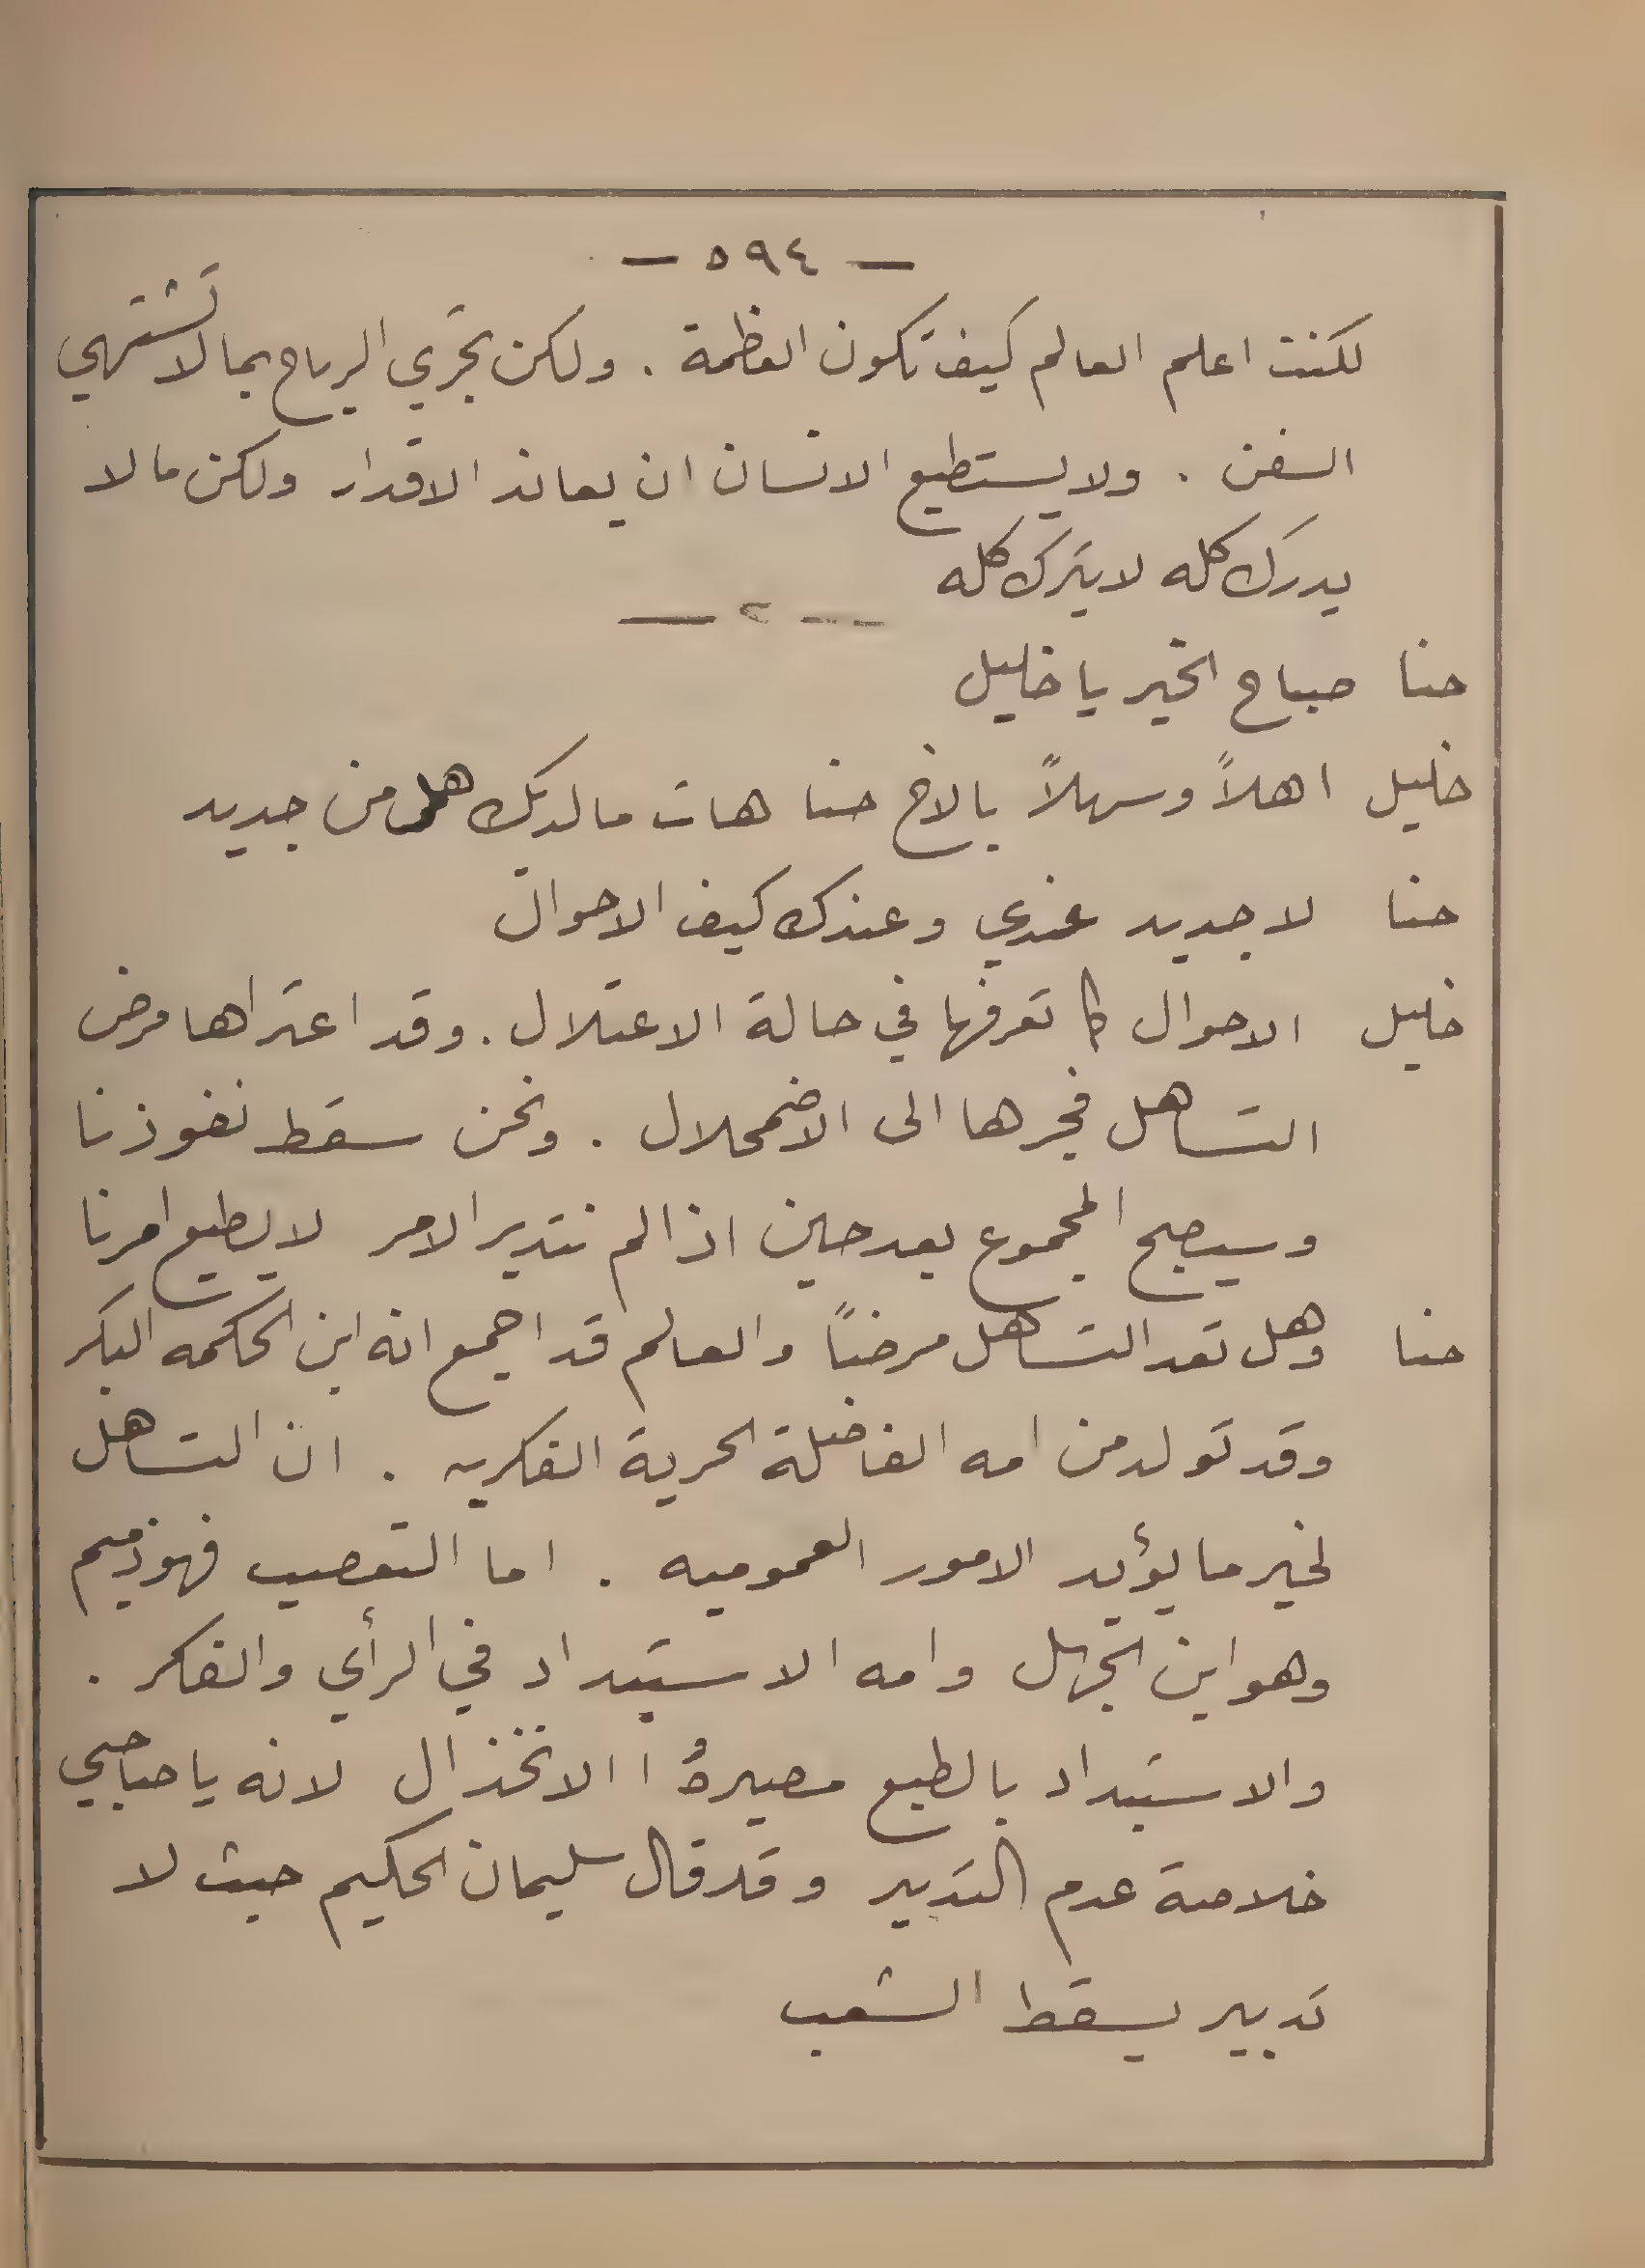 — ٥٩٤ —
لكنت اعلم العالم كيف تكون العظمة . ولكن تجري الرياح بما لا تشتهي
السفن . ولا يستطيع الانسان ان يعاند الاقدار ولكن ما لا
يدرك كله لا يترك كله
— ٢ —
حنا صباح الخير يا خليل
خليل اهلاً وسهلاً بالاخ حنا هات ما لديك هل من جديد
حنا لا جديد عندي وعندك كيف الاحوال
خليل الاحوال كما تعرفها في حالة الاعتلال . وقد اعتراها مرض
التساهل فجرها الى الاضمحلال . ونحن سقط نفوذنا
وسيصبح المجموع بعد حين اذا لم نتدبر الامر لا يطيع امرنا
حنا وهل تعد التساهل مرضاً والعالم قد اجمع انه ابن الحكمه البكر
وقد تولد من امه الفاضلة الحرية الفكريه . ان التساهل
لخير ما يؤيد الامور العموميه . اما التعصب فهو ذميم
وهو ابن الجهل وامه الاستبداد في الرأي والفكر .
والاستبداد بالطبع مصيرهُ ا الانخذال لانه يا صاحبي
خلاصة عدم التدبير وقد قال سليمان الحكيم حيث لا
تدبير يسقط الشعب